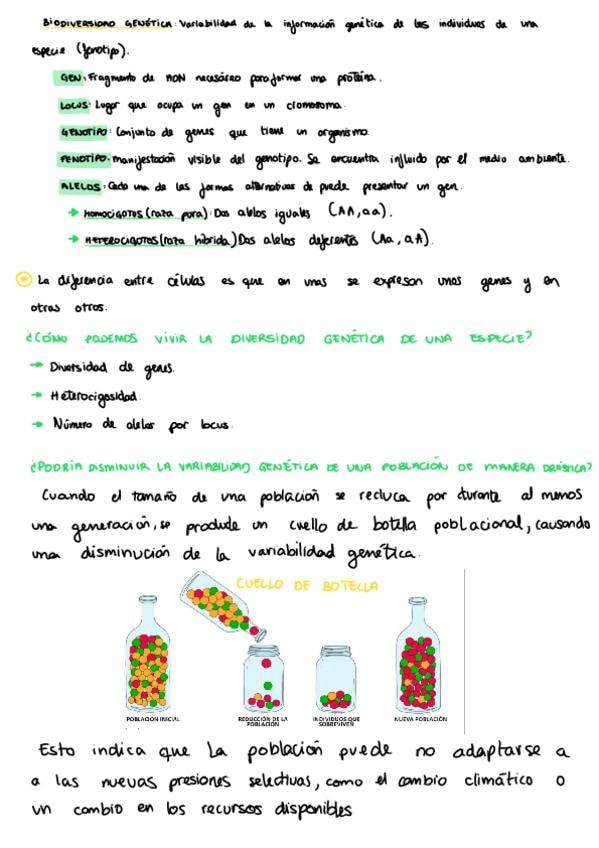 BIODIVERSIDAD GENÉTICA: Variabilidad de la información genética de los individuos de una
especie (fenotipo).
GEN: Fragmento de ADN necesáreo para formar una proteína.
LOCUS: Lugar que ocupa un gen en un cromosoma.
GENOTIPO: Conjunto de genes que tiene un organismo
FENOTIPO: manifestación visible del genotipo. Se encuentra influido por el medio ambiente.
ALELOS: Cada una de las formas alternativas de puede presentar un gen.
→ HOMOCIGOTOS (raza pura): Dos alelos iguales (AA, aa).
→ HETEROCIGOTOS (raza híbrida) Dos alelos diferentes (Aa, aA).
La diferencia entre células es que en unas se expresan unos genes y en
otras otros.
¿CÓMO PODEMOS VIVIR LA DIVERSIDAD GENÉTICA DE UNA ESPECIE?
→ Diversidad de genes.
→ Heterocigosidad.
→ Número de alelos por locus.
¿PODRÍA DISMINUIR LA VARIABILIDAD GENÉTICA DE UNA POBLACIÓN DE MANERA DRÁSTICA?
Cuando el tamaño de una población se reduca por durante al menos
una generación, se produde un cuello de botella poblacional, causando
una disminución de la variabilidad genética.
CUELLO DE BOTELLA
POBLACIÓN INICIAL
REDUCCIÓN DE LA
POBLACIÓN
INDIVIDUOS QUE
SOBREVIVEN
NUEVA POBLACIÓN
Esto indica que la población puede no adaptarse a
a las nuevas presiones selectivas, como el cambio climático o
un cambio en los recursos disponibles